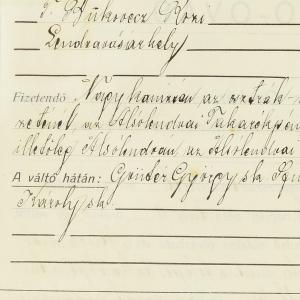 Bukovecz Rozi
Lendvavásárhely
Fizetendő Nagykanizsán az osztrák-
az Alsólendvai Takarékpén
illetőleg Alsólendván az Alsólendvai
A váltó hátán: Günter György sk
Károly sk.